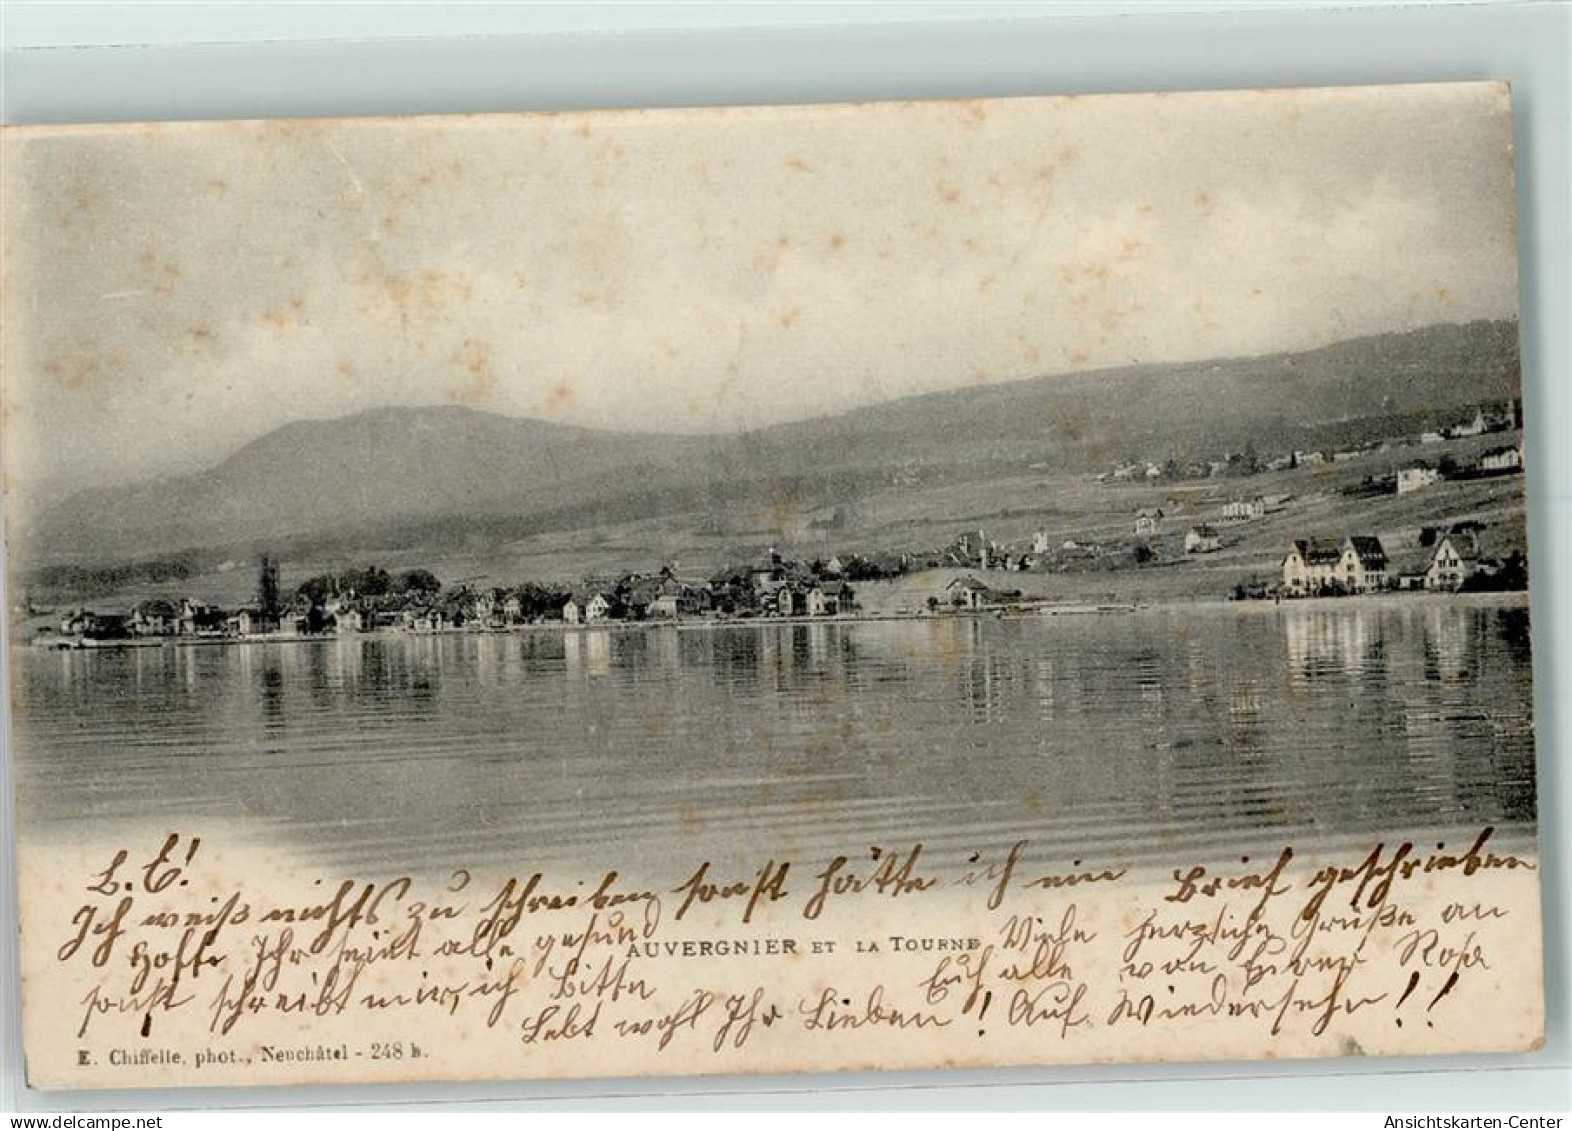 L. E!
Ich weiß nichts zu schreiben sonst hätte ich ein Brief geschrieben
Hoffe Ihr seid alle gesund
AUVERGNIER ET LA TOURNE
Viele herzliche Grüße an
sonst schreibt mir, ich bitte
Euch alle von Eurer Rosa
Lebt wohl Ihr Lieben! Auf Wiedersehn!!
E. Chiffelle, phot., Neuchâtel - 248 b.
Ansichtskarten-Center